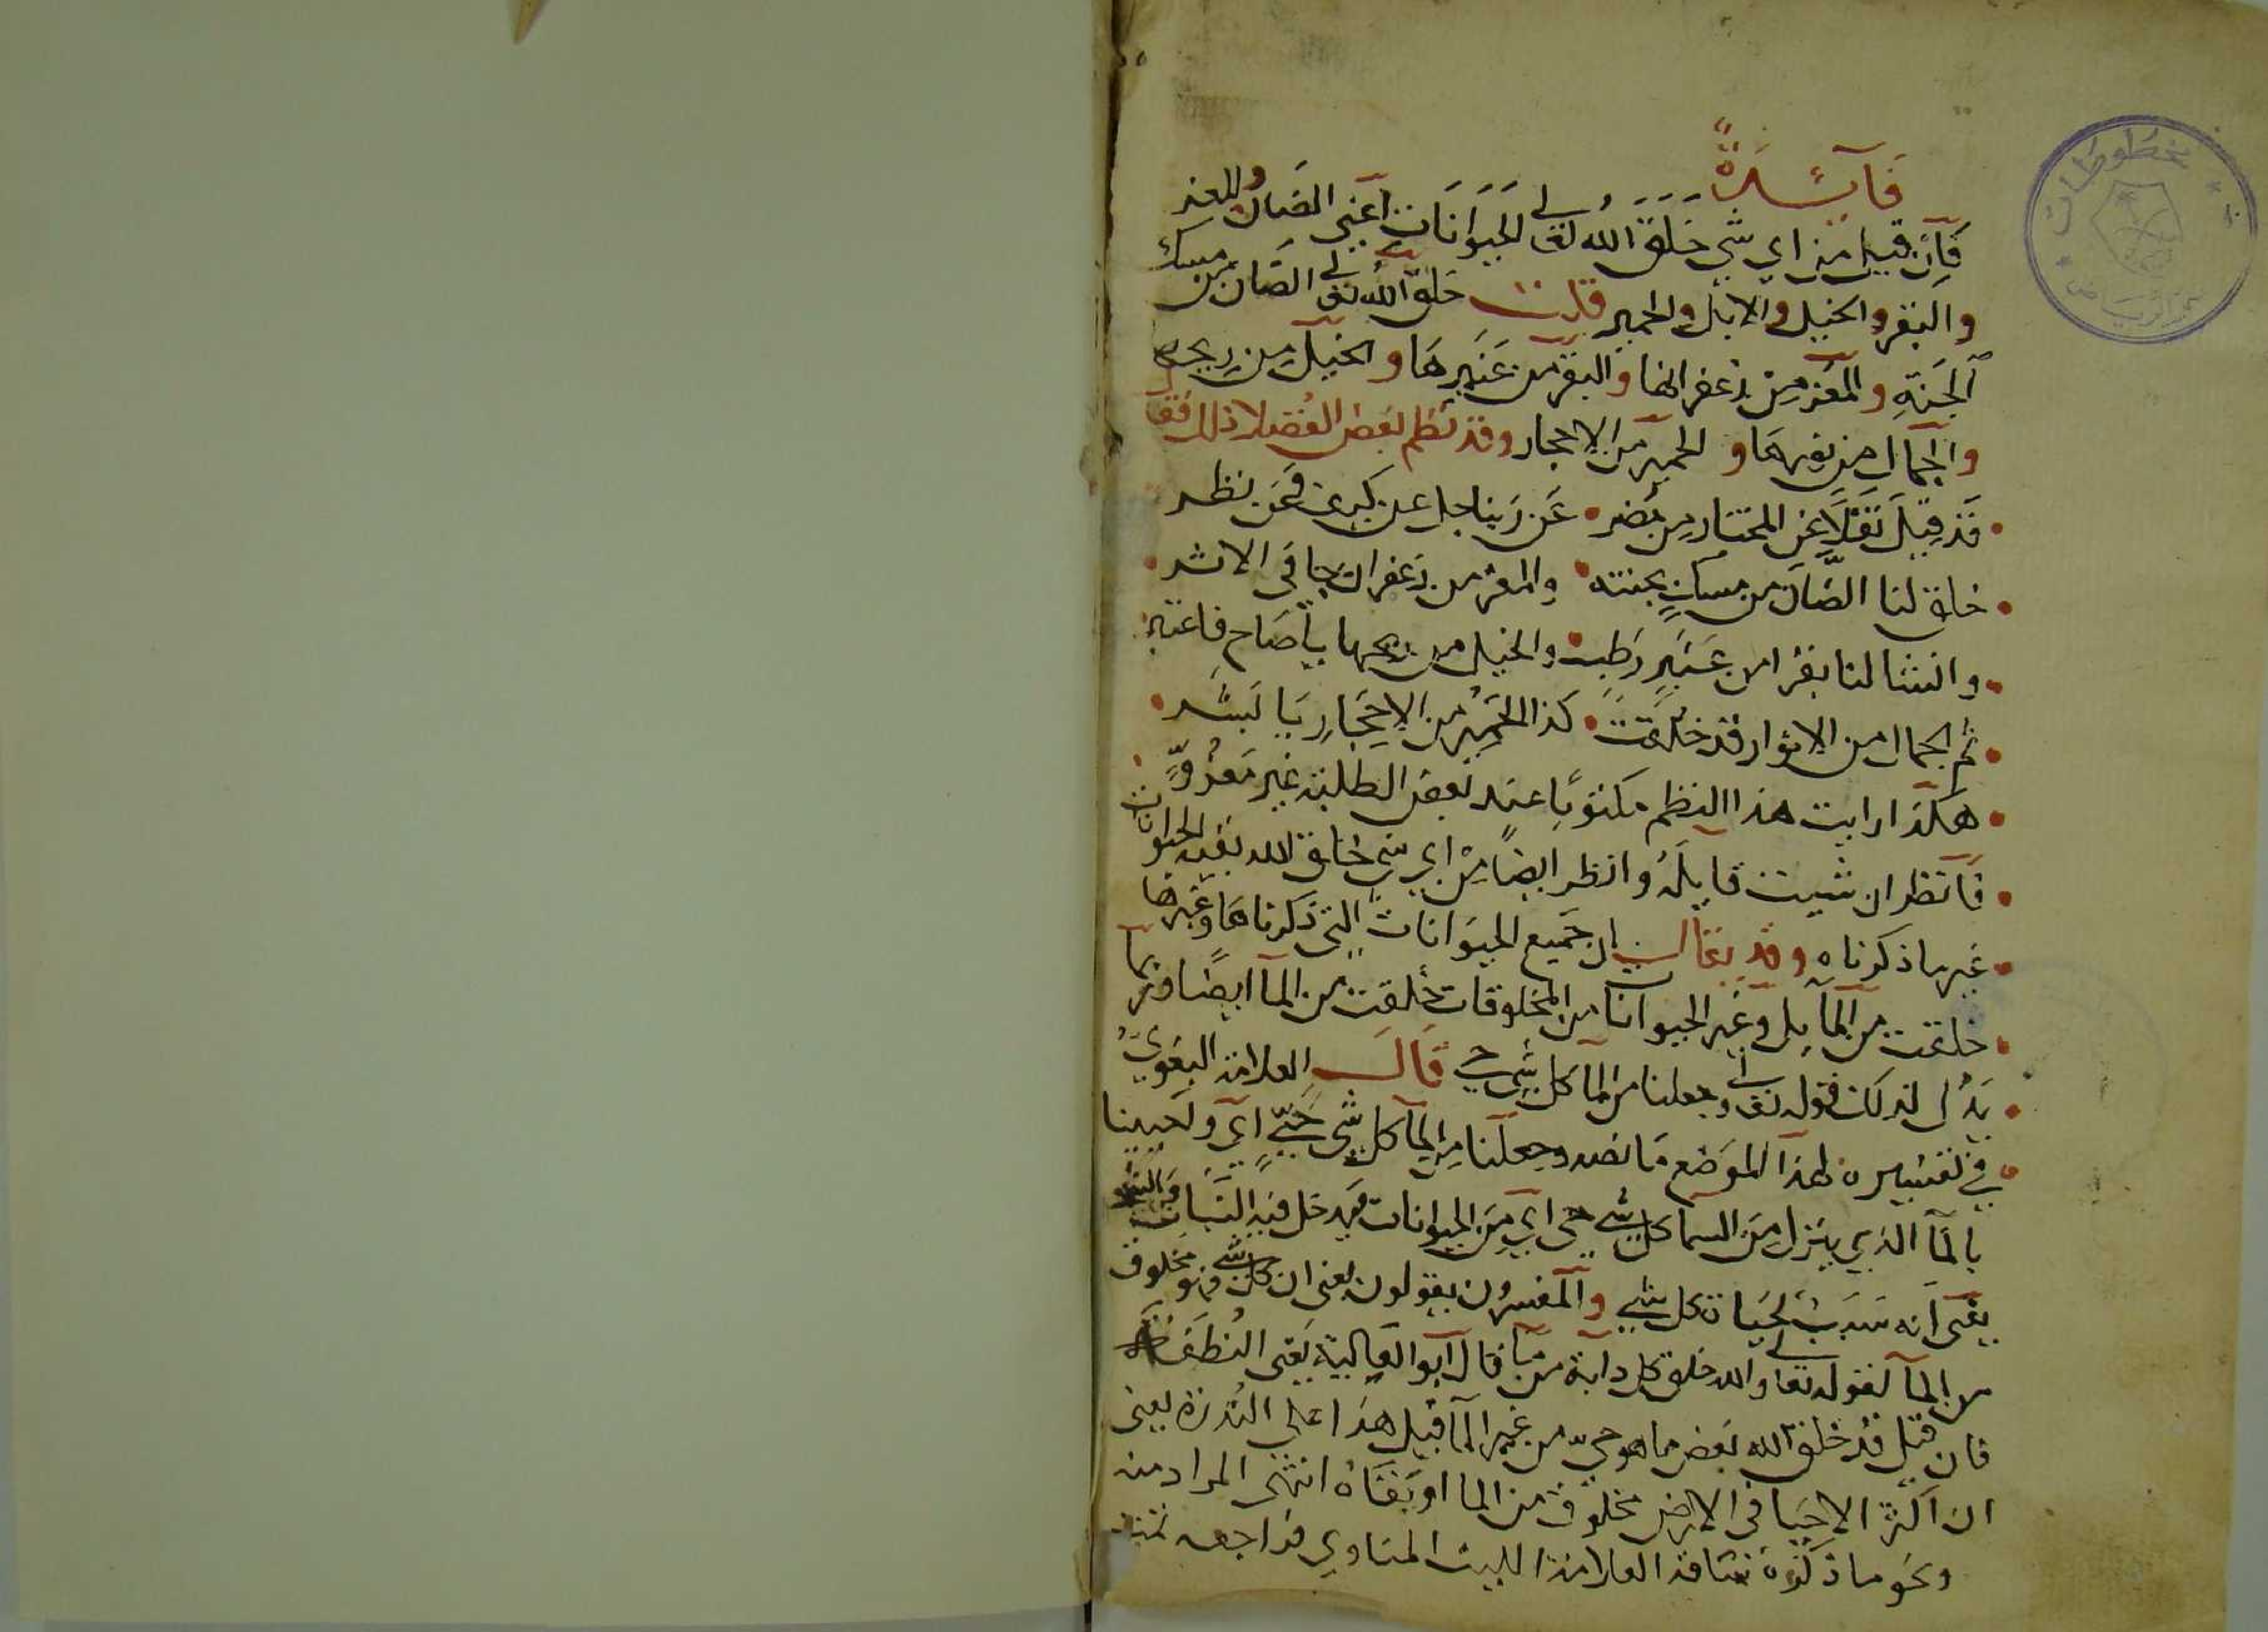 فَآئِدَةٌ
فَإِن قيل من اي شي خَلَقَ الله تعالى الحيوَانَات اعني الضان والمعز
والبقر والخيل والابل والحمير قلت خلق الله تعالى الضان من مسك
الجَنةِ والمعز من زعفرانها والبقر من عنبرهَا والخيل من ريحها
والجمال من نورهَا والحمير من الاحجار وقد نظم بعض الفُضلا ذلك فقا
قد قيل نَقلًا عن المختار من مضر عَن رَبنا جل عن كيف وعَن نظر
خلق لنا الضّان من مسك بجنته والمعز من زعفران جا في الاثر
وانشا لنا بقرا من عَنبَرٍ رَطِب والخيل من ريحها يا صَاح فاعتبر
ثم الجمال من الانوار قد خلقت كذا الحَمِير من الاحجَارِ يَا بَشَر
هكذا رايت هذا النظم مكتوبًا عند بَعض الطلبة غير مَعزُوٍّ
فَانظر ان شيت قايلَهُ وانظر ايضًا مِن اي شي خلق الله بقية الحيوانات
غير ما ذكرناه وقد يقال ان جَميع الحيوَانات التي ذكرناهَا وغيرها
خلقت من المآ بل وغير الحيوانات من المخلوقات خُلقت من المآ ايضًا وربما
يَدُل لذلك قوله تعالى وجعلنا من الما كل شي حي قال العلامة البغويُّ
في تفسيره لهذا الموضع مَا نصه وجعلنا من المآ كل شي حَيٍّ اي واحيينا
بالمآ الذي ينزل مِنَ السما كل شي حي اي مِنَ الحيوانات ويَدخل فيه النَبَات والشجر
يعني انه سَبَبٌ لحيَاة كل شي والمفسرون يقولون يعني ان كل شي حي فهو مخلوق
من المآ لقوله تعالى والله خلق كل دابة من مآ قال ابو العالية يَعني النُطفَة
فان قيل قد خلق الله بعض ما هو حيّ من غير المآ قيل هذا على النُدرة يعني
ان اكثر الاحيَا في الارض مخلوق من الما او بقَاه انتهى المراد منه
ونحو ما ذكرَه ساقه العلامة الليث المناوي فراجعه
مخطوطات